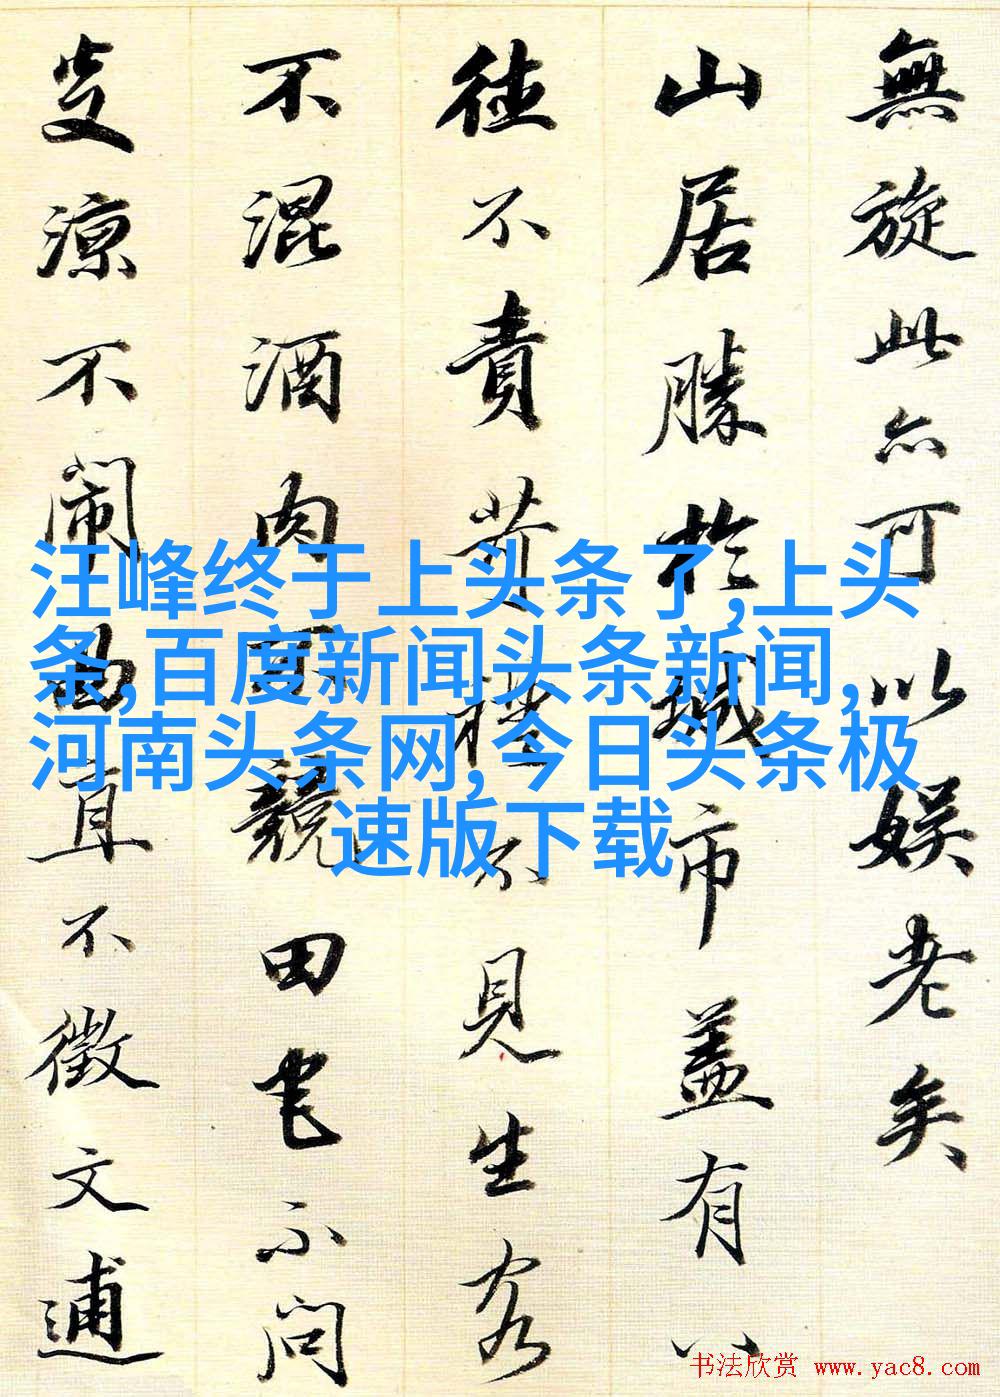 無旋此亦可以娱老矣
山居勝於城市蓋有八
徃不責苛禮不見生客
不混酒肉不競田宅不問
炎凉不闹曲直不徵文逋
汪峰终于上头条了,上头
条,百度新闻头条新闻,
河南头条网,今日头条极
速版下载
书法欣赏 www.yac8.com